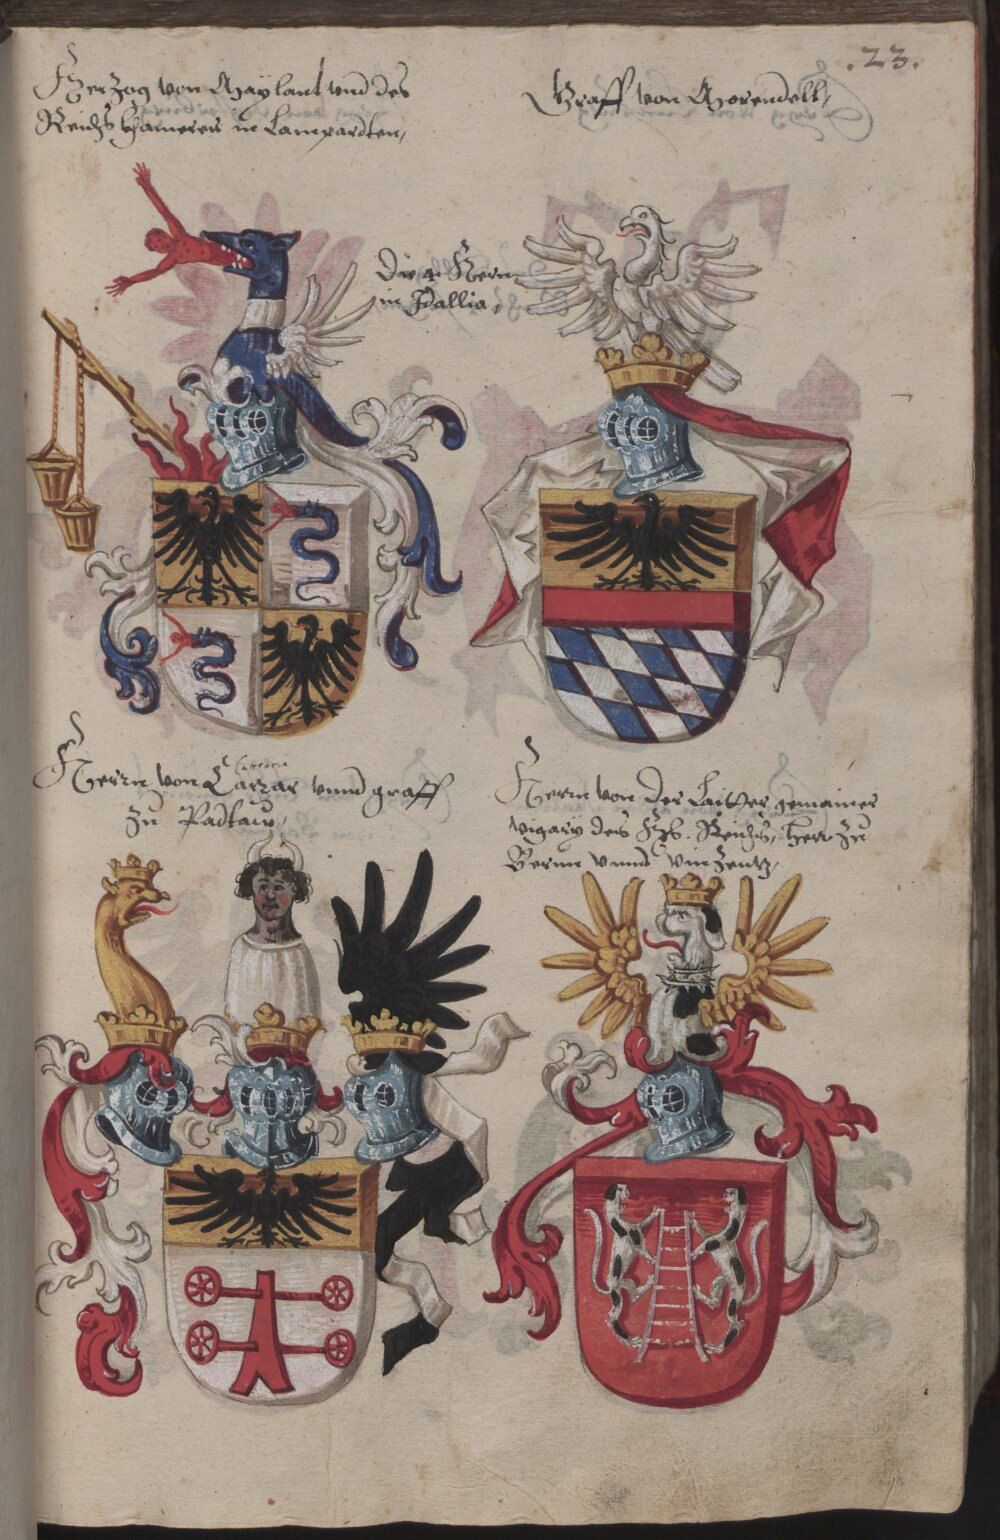 .23.
Hertzog von Maylant vnd des
Reichs Camerer in Lampardten,
Graff von Morendell,
Die 4 Herrn
in Ittallia,
Herrn von Carrar vnnd graff
zu Padtaw,
Herrn von der Laitter gemainer
Vigary des Hey. Reichs, herr zu
Bernn vnnd Vinzentz,